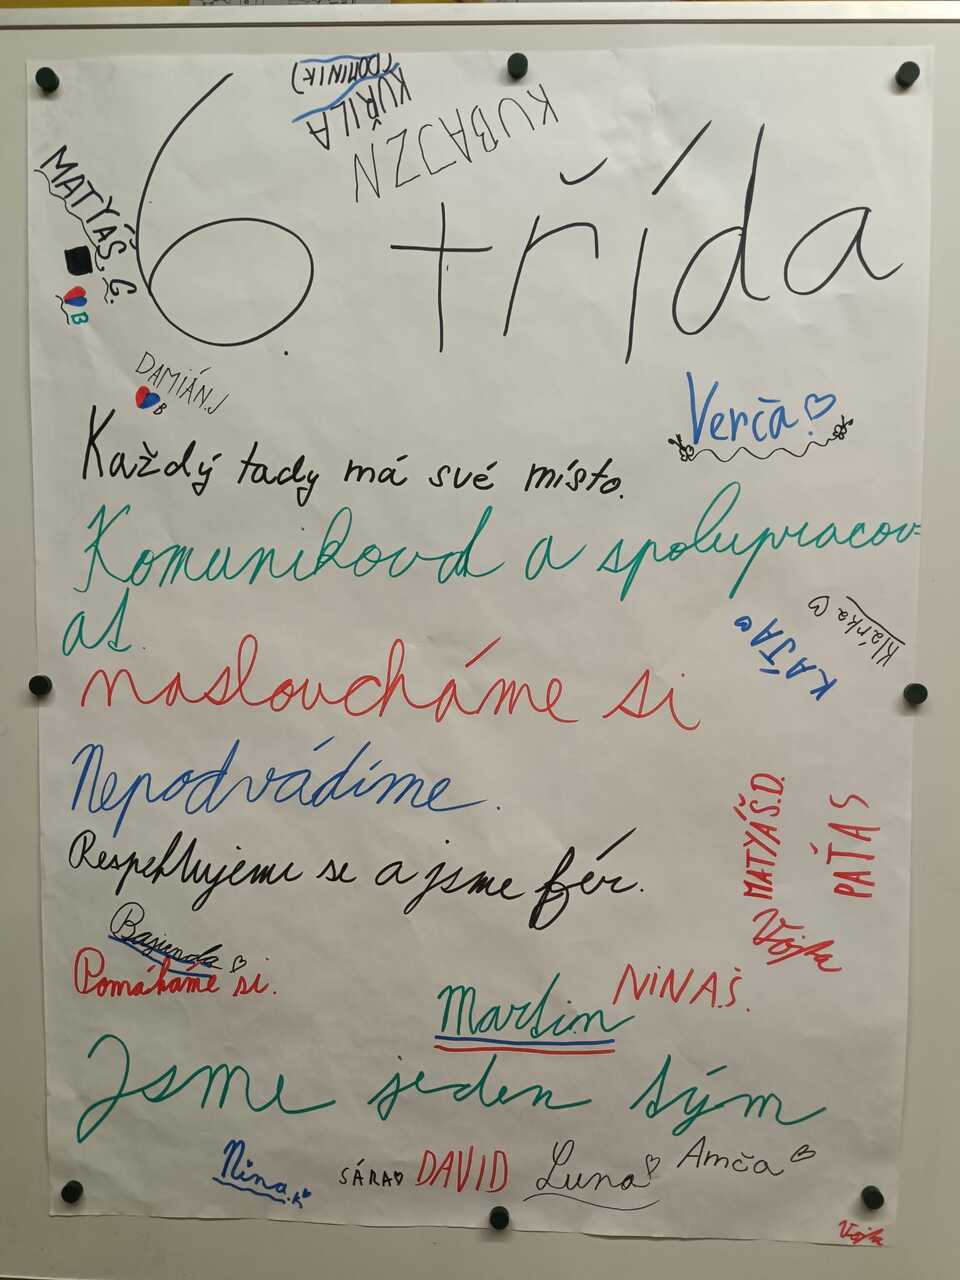 (DOMINIK)
KUŘILA
KUBAJZN
MATYÁŠ. G.
6. třída
B
DAMIÁN.J
B
Verča
Každý tady má své místo.
Komunikovat a spolupracov-
at.
Klárka
KÁŤA
nasloucháme si
Nepodvádíme.
MATYÁŠ.D.
PAŤA S
Respektujeme se a jsme fér.
Vojta
Pomáháme si.
NINA.Š.
Martin
Jsme jeden tým
Nina.K
SÁRA
DAVID
Luna
Amča
Vojta